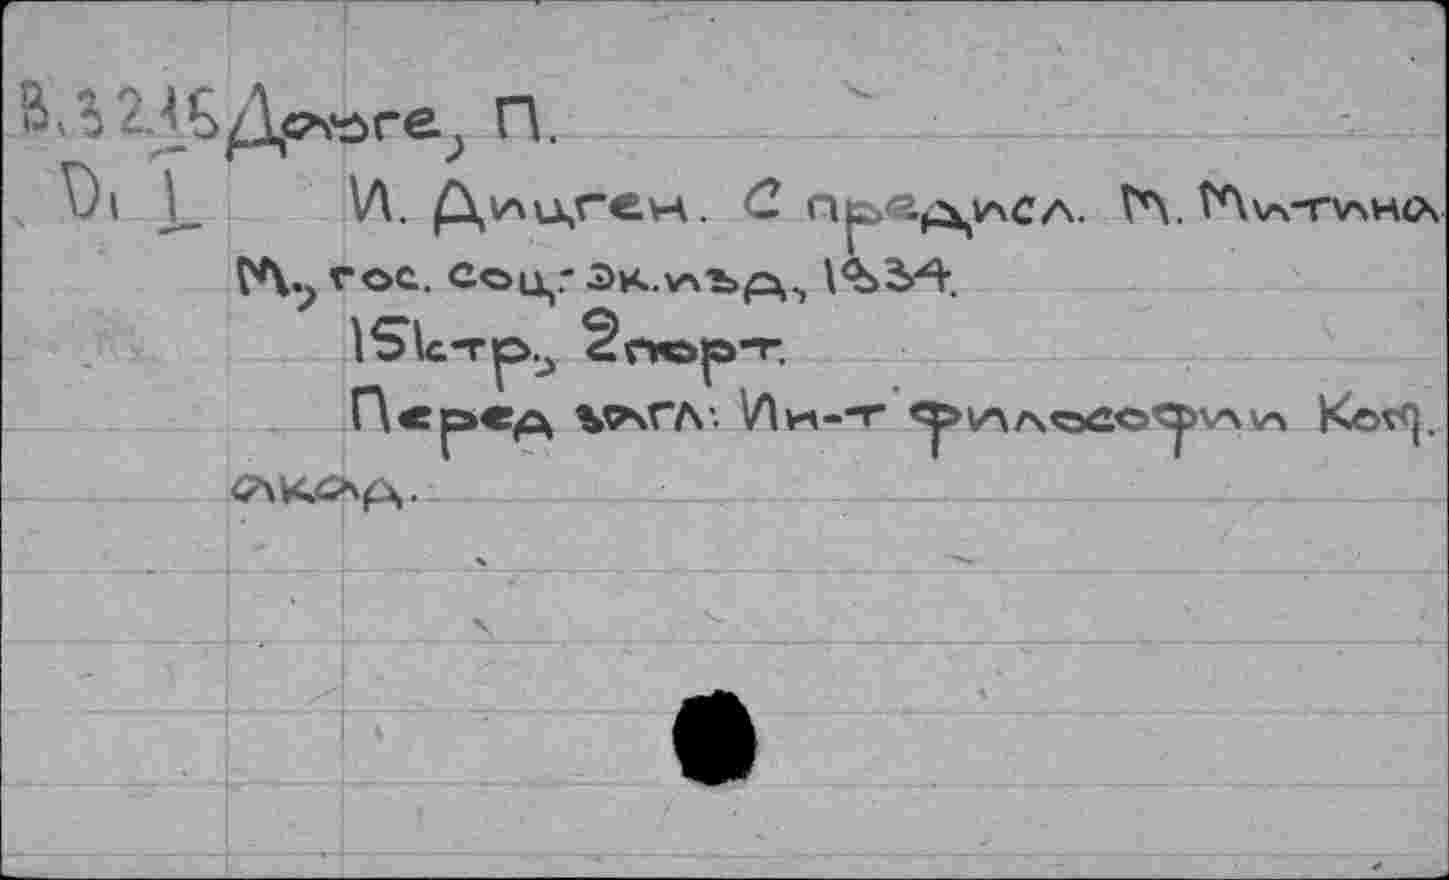 В.3 2.15 Даъге, П.
D1 1 И. Дицген. С предисл. М. Митина
М., гос. соц.-эк. изд., 1934.
151с тр., 2 порт.
Перед загл: Ин-т философии Ком.
акад.